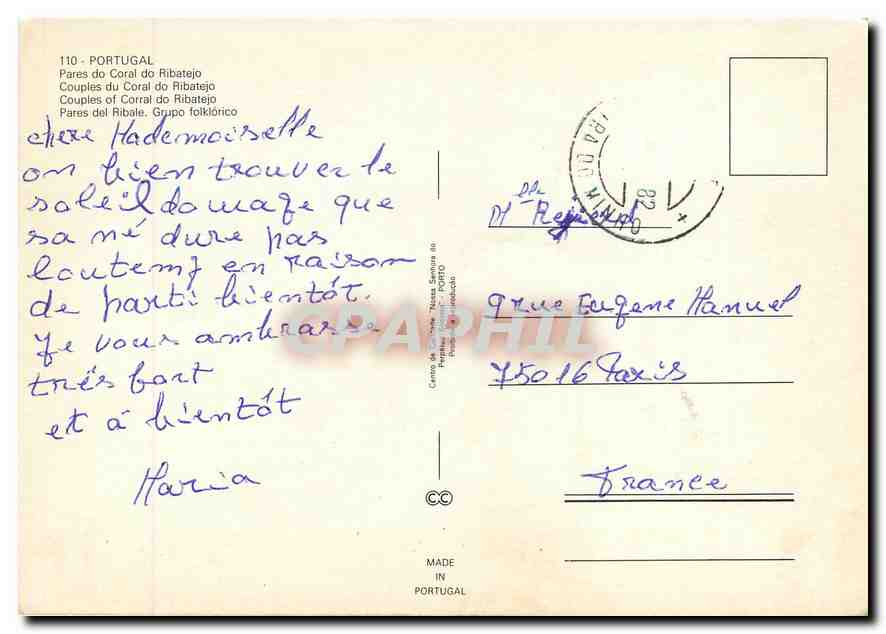 110 - PORTUGAL
Pares do Coral do Ribatejo
Couples du Coral do Ribatejo
Couples of Corral do Ribatejo
Pares del Ribale. Grupo folklórico
chere Mademoiselle
on bien trouver le
soleil domage que
sa né dure pas
loutemp en raison
de parti bientôt.
Je vous ambrasse
très fort
et á bientôt
Maria
Centro de Caridade "Nossa Senhora do
Perpétuo Socorro" - PORTO
Proibida a reprodução
CC
MADE
IN
PORTUGAL
DO MINHO
82
Mlle
9 rue Eugene Manuel
75016 Paris
France
CPAPHIL